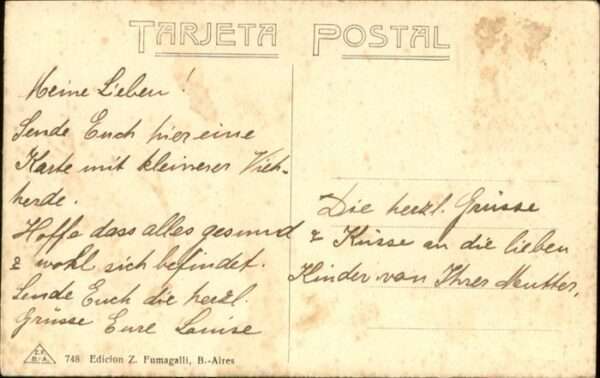 TARJETA POSTAL
Meine Lieben!
Sende Euch hier eine
Karte mit kleinerer Vieh-
herde.
Hoffe dass alles gesund
& wohl sich befindet.
Sende Euch die herzl.
Grüsse Eure Louise
Die herzl. Grüsse
& Küsse an die lieben
Kinder von Ihrer Mutter.
Z.F.
B.-A.
748 Edicion Z. Fumagalli, B.-Aires